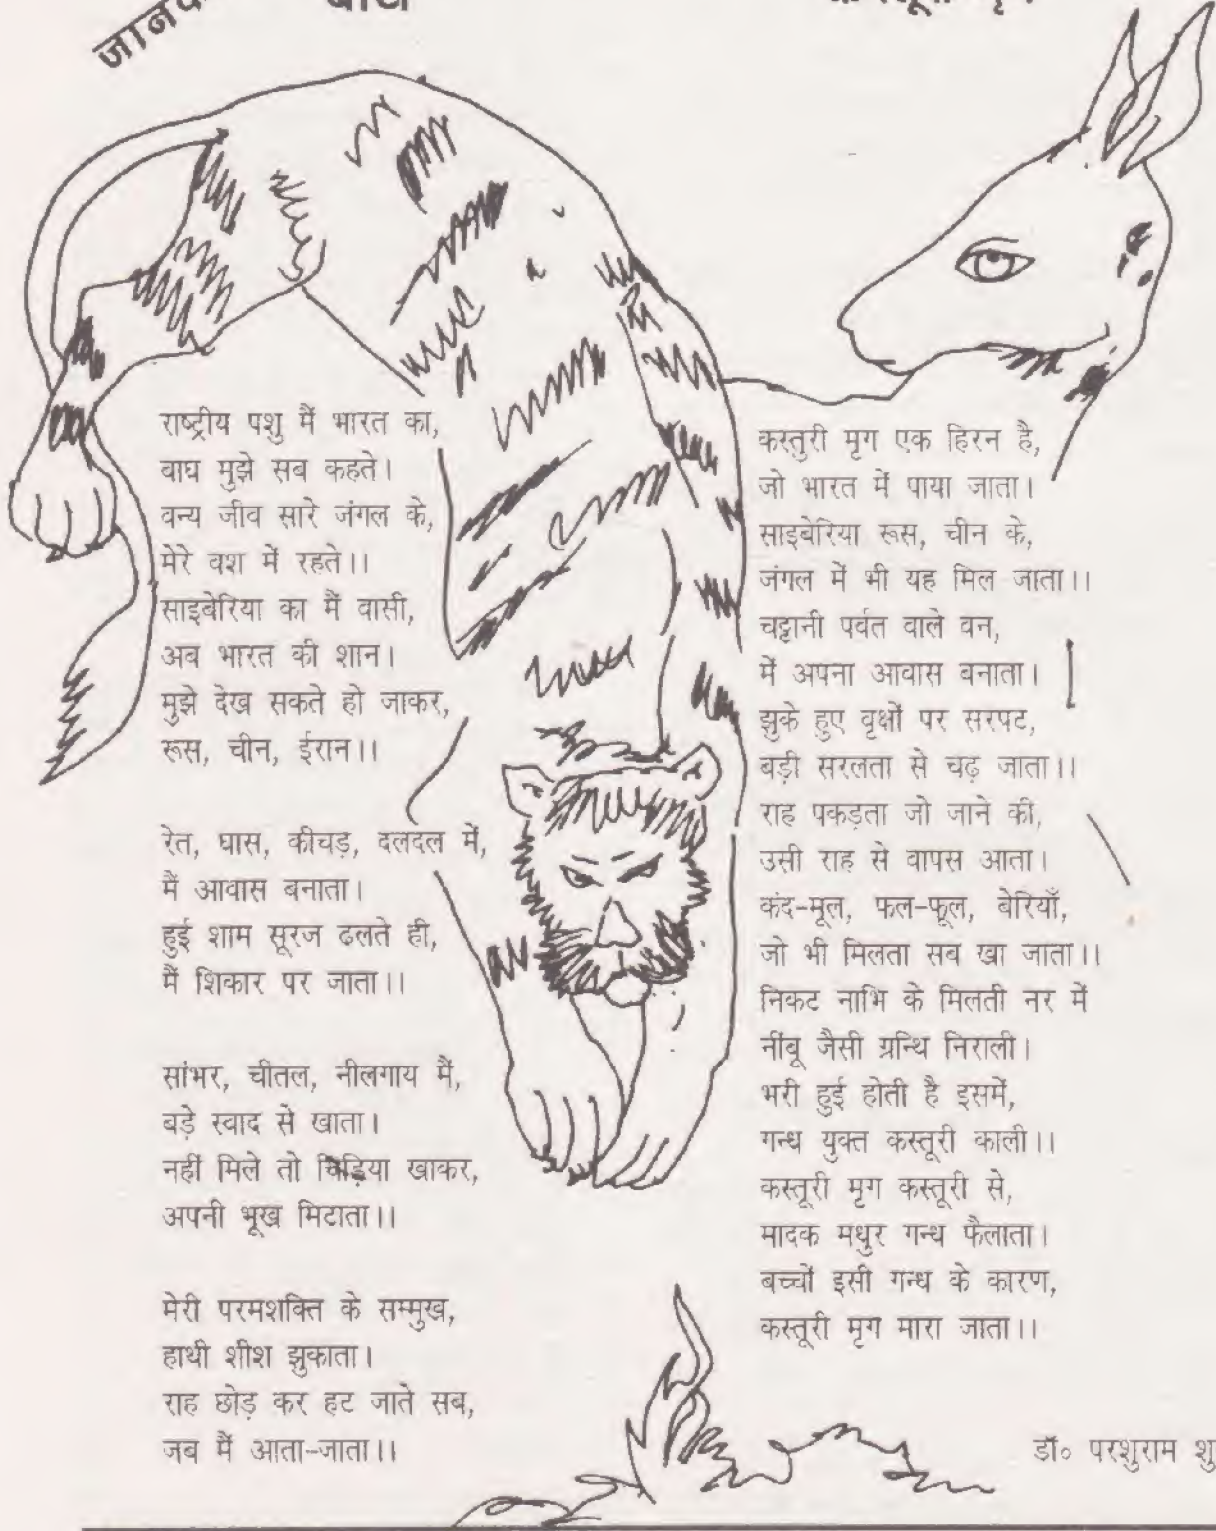 राष्ट्रीय पशु मैं भारत का,
वाघ मुझे सब कहते।
वन्य जीव सारे जंगल के,
मेरे वश में रहते।।
साइबेरिया का मैं वासी,
अब भारत की शान।
मुझे देख सकते हो जाकर,
रूस, चीन, ईरान।।

रेत, घास, कीचड़, दलदल में,
मैं आवास बनाता।
हुई शाम सूरज ढलते ही,
मैं शिकार पर जाता।।

सांभर, चीतल, नीलगाय मैं,
बड़े स्वाद से खाता।
नहीं मिले तो चिड़िया खाकर,
अपनी भूख मिटाता।।

मेरी परमशक्ति के सम्मुख,
हाथी शीश झुकाता।
राह छोड़ कर हट जाते सब,
जब मैं आता-जाता।।

कस्तुरी मृग एक हिरन है,
जो भारत में पाया जाता।
साइबेरिया रूस, चीन के,
जंगल में भी यह मिल जाता।।
चट्टानी पर्वत वाले वन,
में अपना आवास बनाता।
झुके हुए वृक्षों पर सरपट,
बड़ी सरलता से चढ़ जाता।।
राह पकड़ता जो जाने की,
उसी राह से वापस आता।
कंद-मूल, फल-फूल, बेरियाँ,
जो भी मिलता सब खा जाता।।
निकट नाभि के मिलती नर में
नींबू जैसी ग्रन्थि निराली।
भरी हुई होती है इसमें,
गन्ध युक्त कस्तूरी काली।।
कस्तूरी मृग कस्तूरी से,
मादक मधुर गन्ध फैलाता।
बच्चों इसी गन्ध के कारण,
कस्तूरी मृग मारा जाता।।

डॉ० परशुराम